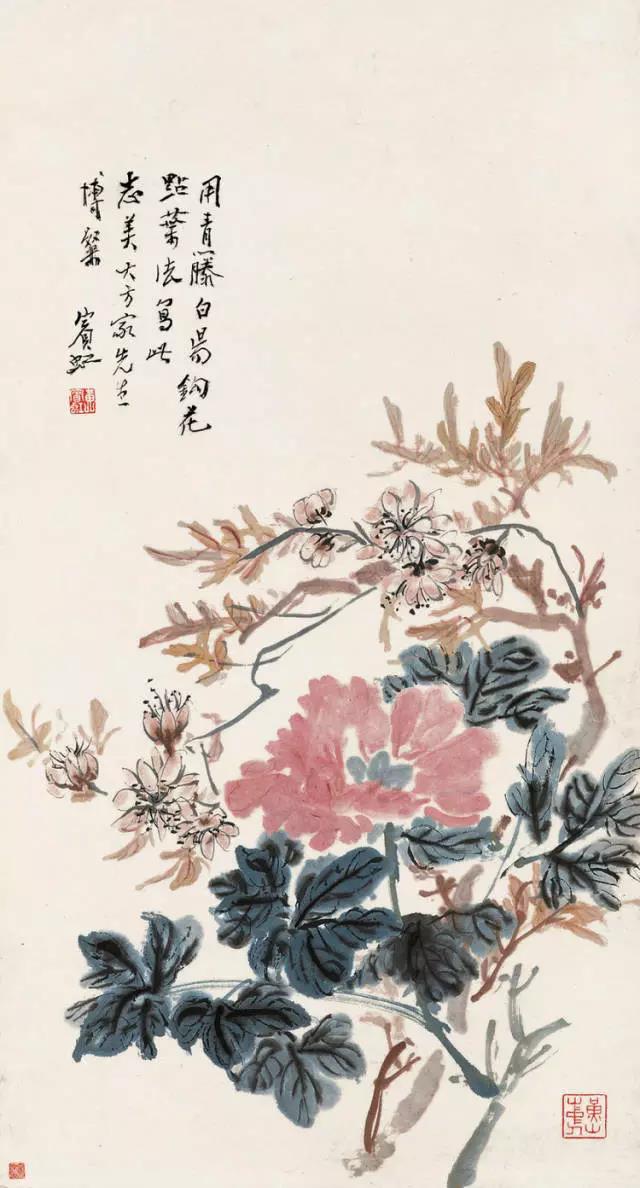 用青藤白昜鉤花
點葉法寫此
志美大方家先生
博粲 賓虹